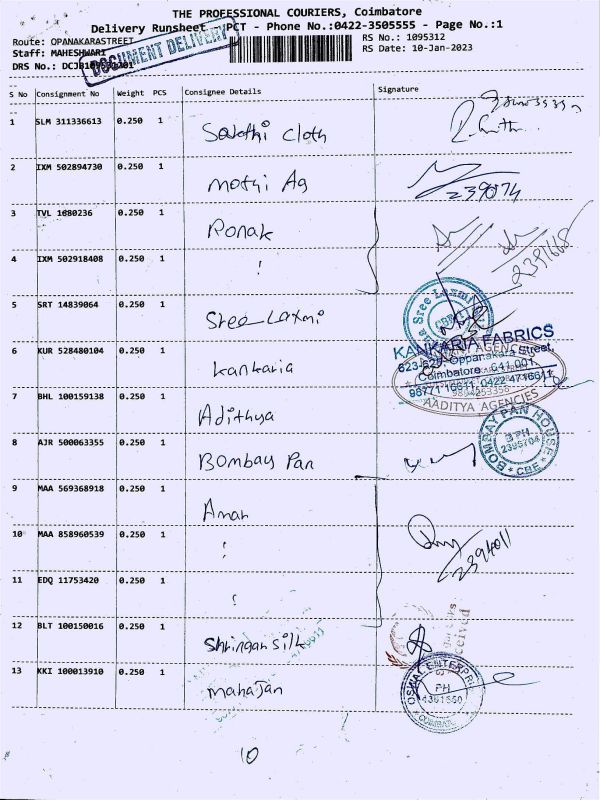 THE PROFESSIONAL COURIERS, Coimbatore
Delivery Runsheet - PCT - Phone No.:0422-3505555 - Page No.:1
Route: OPANAKARASTREET
RS No.: 1095312
Staff: MAHESHWARI
RS Date: 10-Jan-2023
DRS No.:
DOCUMENT DELIVERY
S No Consignment No Weight PCS Consignee Details Signature
1 SLM 311336613 0.250 1 Cloth
2 IXM 502894730 0.250 1 Mothi Ag 239074
3 TVL 1680236 0.250 1 Ronak
4 IXM 502918408 0.250 1 2391668
5 SRT 14839064 0.250 1 Sree Laxmi
6 KUR 528480104 0.250 1 Kankaria
KANKARIA FABRICS
Oppanakara Street,
Coimbatore - 641 001.
98771 16611, 0422 4716611
AADITYA AGENCIES
7 BHL 100159138 0.250 1 Adithya
8 AJR 500063355 0.250 1 Bombay Pan
BOMBAY PAN HOUSE
PH
2395704
* CBE *
9 MAA 569368918 0.250 1 Aman
10 MAA 858960539 0.250 1 2394011
11 EDQ 11753420 0.250 1
12 BLT 100150016 0.250 1 Shringar Silk
13 KKI 100013910 0.250 1 Mahajan
PH
10